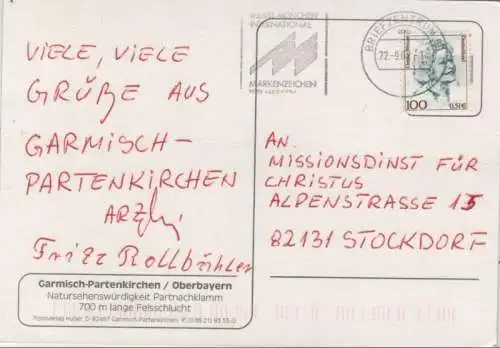 VIELE, VIELE
GRÜßE AUS
GARMISCH-
PARTENKIRCHEN
Fritz Rollbühler
Garmisch-Partenkirchen / Oberbayern
Natursehenswürdigkeit Partnachklamm
700 m lange Felsschlucht
INTERNATIONAL
MARKENZEICHEN
BRIEFZENTRUM
100
0,51€
AN.
MISSIONSDINST FÜR
CHRISTUS
ALPENSTRASSE 15
82131 STOCKDORF